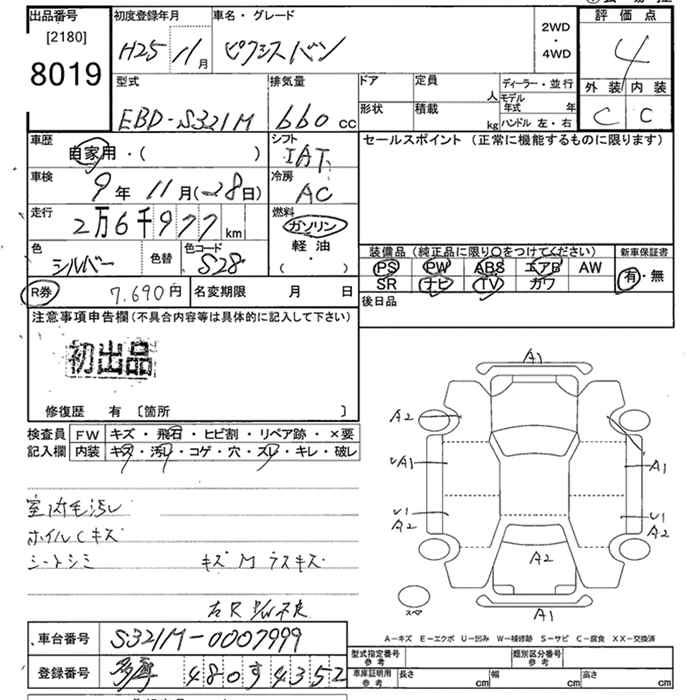 出品番号 初度登録年月 車名・グレード 2WD・4WD 評価点
[2180] 8019 H25 11月 ピクシスバン 4
型式 排気量 ドア 定員 人 ディーラー・並行 外装 内装
EBD-S321M 660cc 形状 積載 kg モデル年式 年 ハンドル 左・右 C C
車歴 自家用・( ) シフト IAT セールスポイント (正常に機能するものに限ります)
車検 9年11月(28日) 冷房 AC
走行 2万6千977km 燃料 ガソリン
軽油
( ・ )
色 シルバー 色替 色コード S28 装備品 (純正品に限り○をつけてください) 新車保証書
PS PW ABS エアB AW 有・無
SR ナビ TV カワ
R券 7,690円 名変期限 月 日 後日品
注意事項申告欄(不具合内容等は具体的に記入して下さい)
初出品
修復歴 有 [箇所 ]
検査員 FW キズ・飛石・ヒビ割・リペア跡・×要
記入欄 内装 キズ・汚れ・コゲ・穴・スレ・キレ・破レ
A1
A2
A1 A1
U1 A2 U1 A2
A2
A1
室内毛汚レ
ホイルCキズ
シートシミ キズM ラスキズ
A-キズ E-エクボ U-凹み W-補修跡 S-サビ C-腐食 XX-交換済
車台番号 S321M-0007999
型式指定番号 参考 類別区分番号 参考
登録番号 480 す 4352
車庫証明用 参考 長さ cm 幅 cm 高さ cm